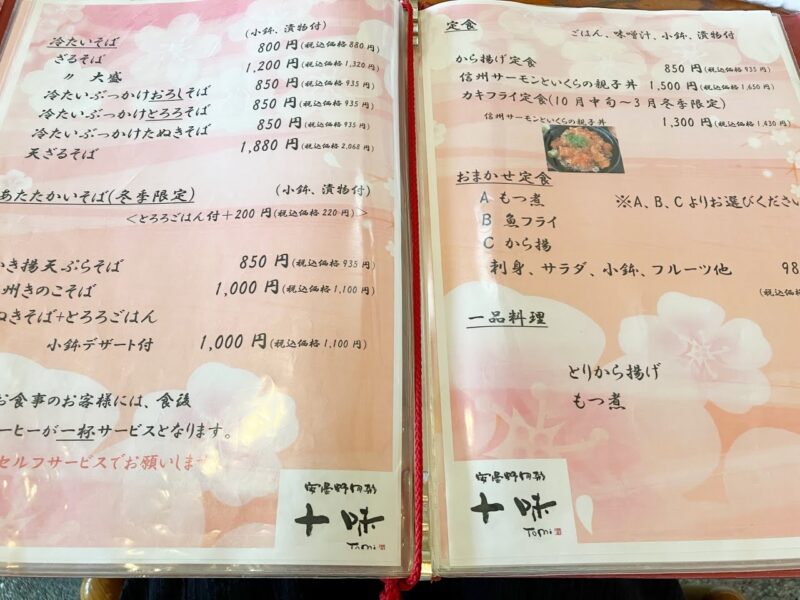 (小鉢、漬物付)
冷たいそば
ざるそば 800円(税込価格880円)
〃 大盛 1,200円(税込価格1,320円)
冷たいぶっかけおろしそば 850円(税込価格935円)
冷たいぶっかけとろろそば 850円(税込価格935円)
冷たいぶっかけたぬきそば 850円(税込価格935円)
天ざるそば 1,880円(税込価格2,068円)
あたたかいそば(冬季限定) (小鉢、漬物付)
<とろろごはん付+200円(税込価格220円)>
き揚天ぷらそば 850円(税込価格935円)
州きのこそば 1,000円(税込価格1,100円)
ぬきそば+とろろごはん
小鉢デザート付 1,000円(税込価格1,100円)
お食事のお客様には、食後
ーヒーが一杯サービスとなります。
セルフサービスでお願いします
十味
Tomi
定食 ごはん、味噌汁、小鉢、漬物付
から揚げ定食 850円(税込価格935円)
信州サーモンといくらの親子丼 1,500円(税込価格1,650円)
カキフライ定食(10月中旬~3月冬季限定)
1,300円(税込価格1,430円)
信州サーモンといくらの親子丼
おまかせ定食
A もつ煮 ※A、B、Cよりお選びください
B 魚フライ
C から揚
刺身、サラダ、小鉢、フルーツ他 98
(税込
一品料理
とりから揚げ
もつ煮
十味
Tomi